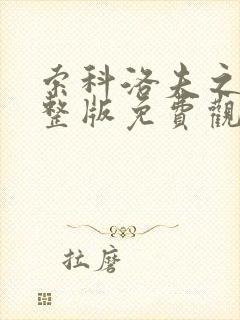 索科洛夫之
整版免費觀
拉磨